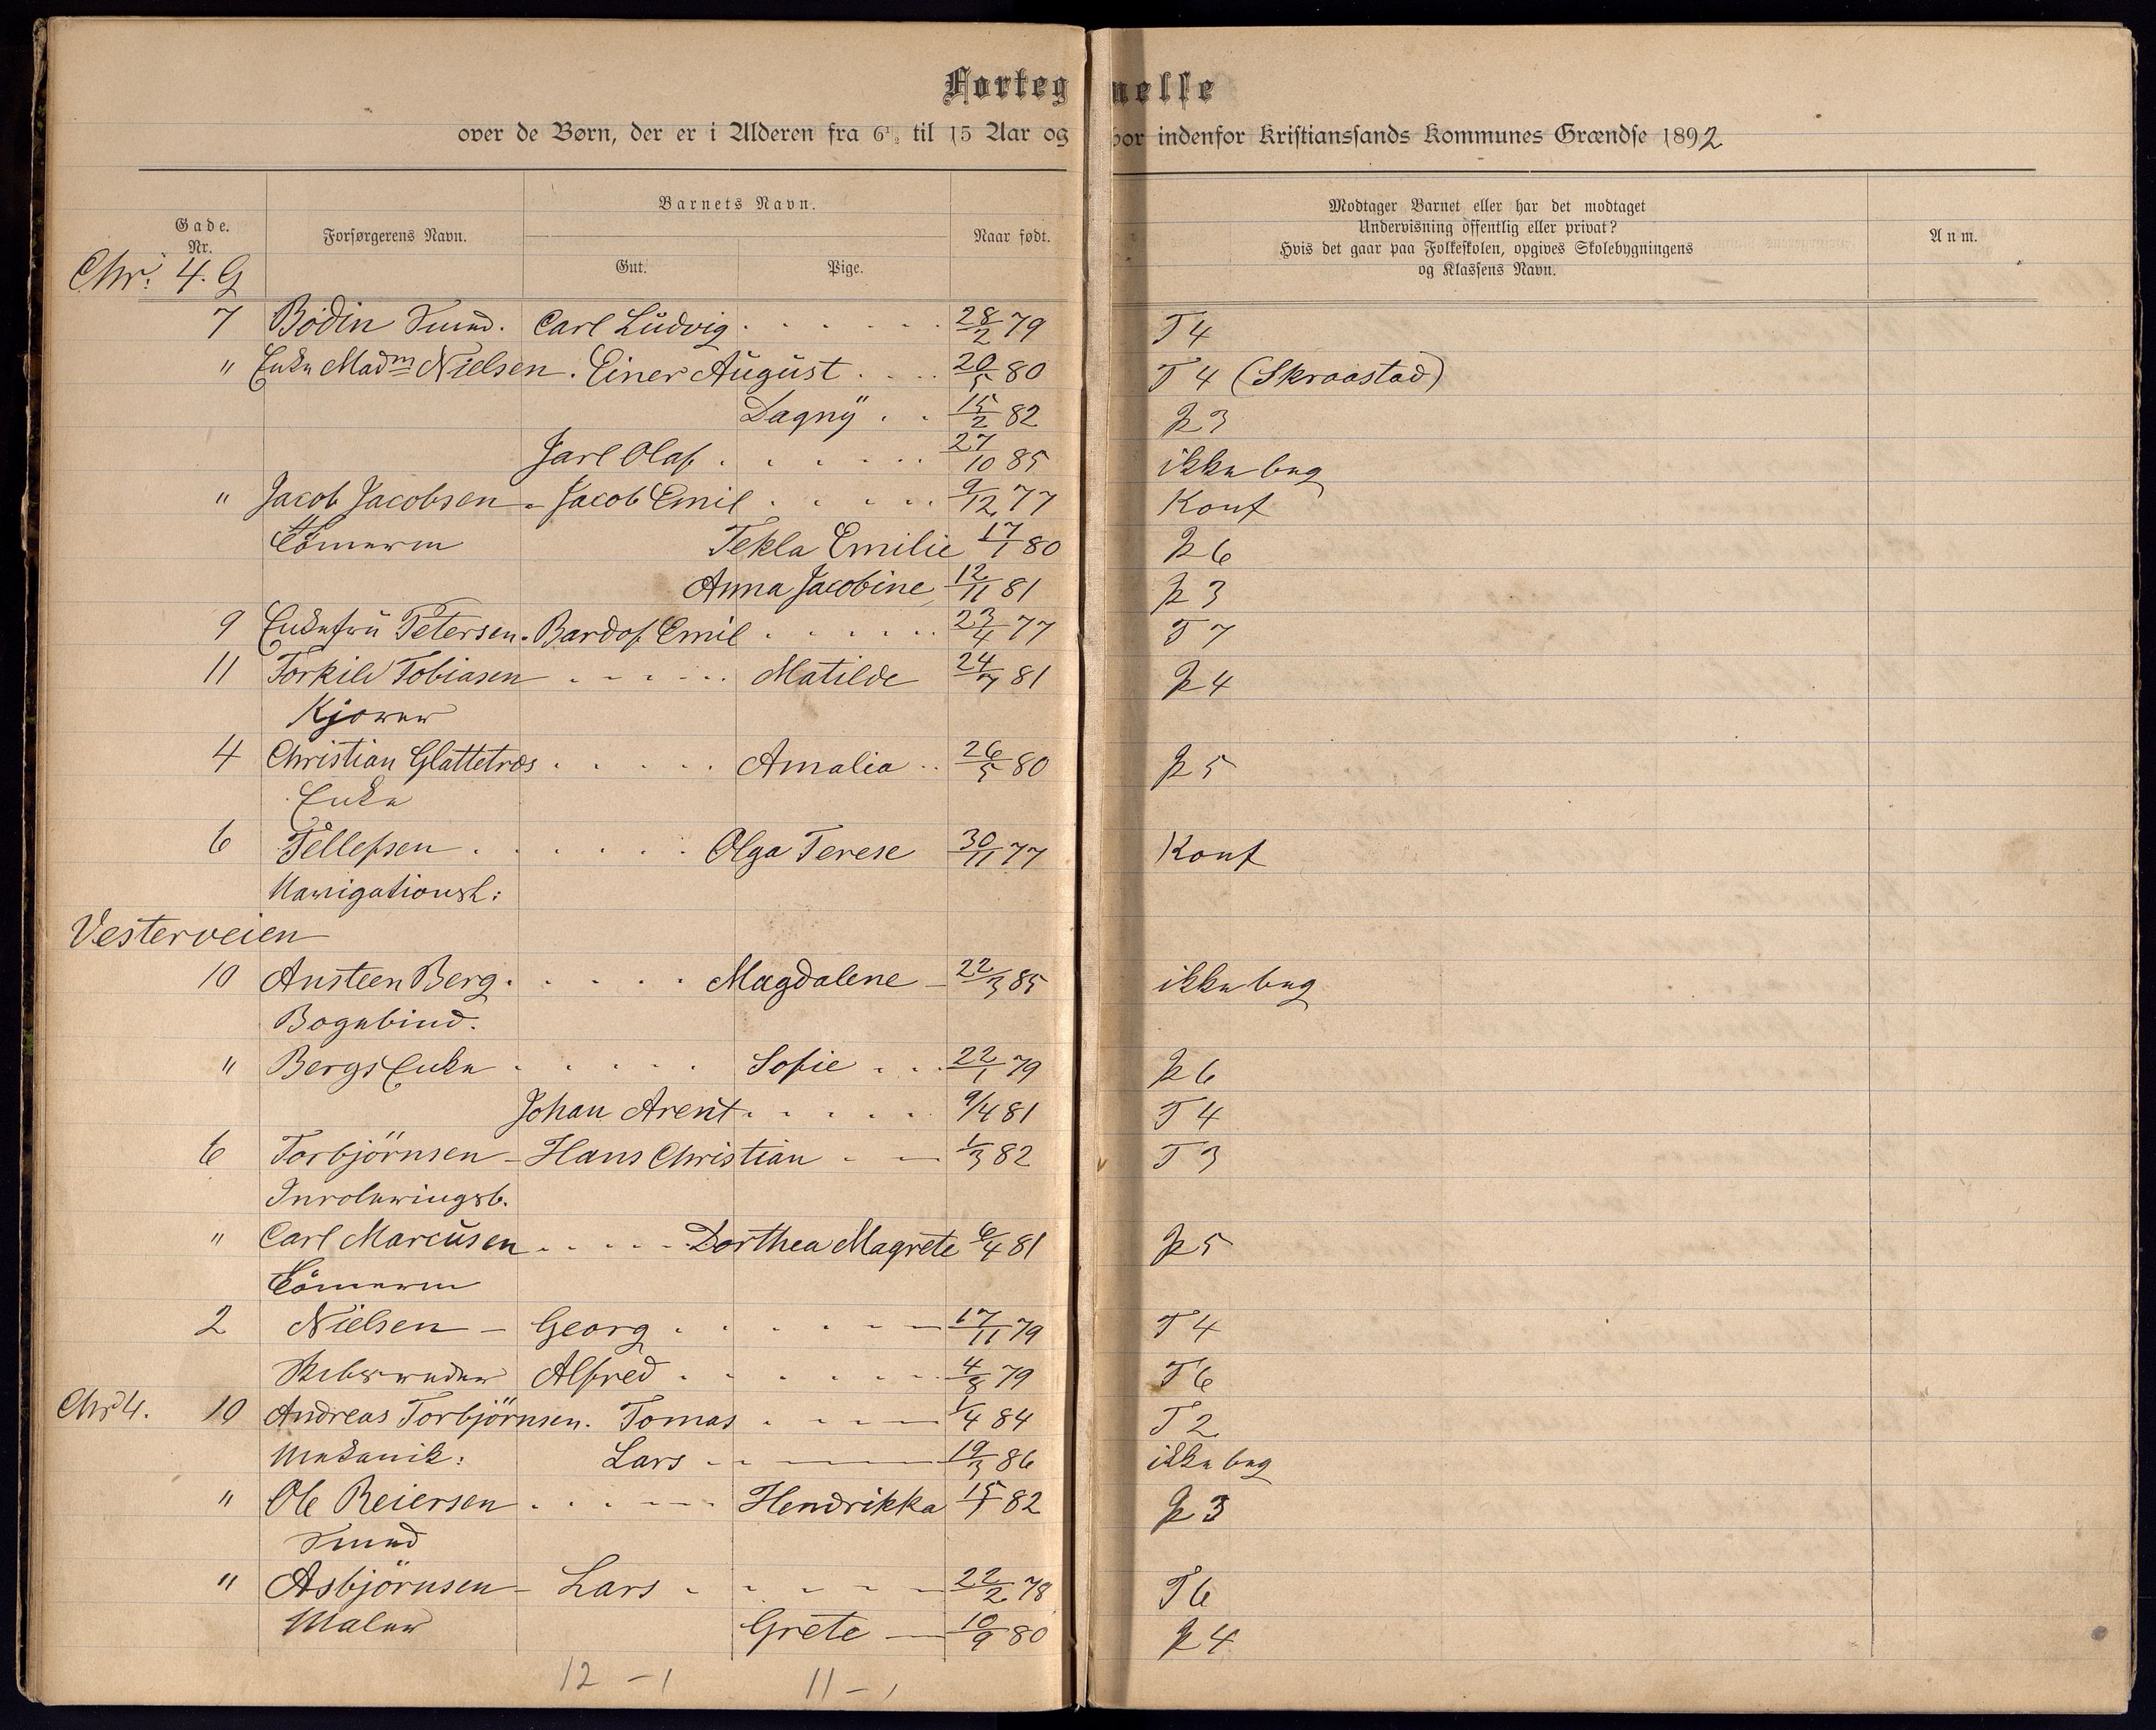 Forteg nelse
over de Børn, der er i Alderen fra 6½ til 15 Aar og bor indenfor Kristianssands Kommunes Grændse 1892
Gade. Nr. Forsørgerens Navn. Barnets Navn. Gut. Pige. Naar født. Modtager Barnet eller har det modtaget Undervisning offentlig eller privat? Hvis det gaar paa Folkeskolen, opgives Skolebygningens og Klassens Navn. Anm.
Chr: 4. G
7 Bodin Smed. Carl Ludvig 28/2 79 T 4
" Enke Madm Nielsen. Einer August 20/5 80 T 4 (Skraastad)
Dagny 15/2 82 P 3
Jarl Olaf 27/10 85 ikke beg
" Jacob Jacobsen - Jacob Emil 9/12 77 Konf
Tömerm Tekla Emilie 17/1 80 P 6
Anna Jacobine 12/11 81 P 3
9 Enkefru Petersen. Bardof Emil 23/4 77 T 7
11 Torkild Tobiasen Matilde 24/7 81 P 4
Kjörer
4 Christian Glattetræs Amalia 26/5 80 P 5
Enke
6 Tellefsen Olga Terese 30/11 77 Konf
Navigationsl:
Vesterveien
10 Austeen Berg Magdalene 22/3 85 ikke beg
Bogebind.
" Bergs Enke Sofie 22/1 79 P 6
Johan Arent 9/4 81 T 4
6 Torbjörnsen - Hans Christian 1/3 82 T 3
Inroleringsb.
" Carl Marcusen Dorthea Magrete 6/4 81 P 5
Tömerm
2 Nielsen - Georg 17/11 79 T 4
Skibsreder Alfred 4/8 79 T 6
Chr 4. 10 Andreas Torbjörnsen. Tomas 1/4 84 T 2
Mekanik: Lars 19/3 86 ikke beg
" Ole Reiersen Hendrikka 15/1 82 P 3
Smed
" Asbjörnsen - Lars 22/2 78 T 6
Maler Grete 10/9 80 P 4
12 - 1 11 - 1